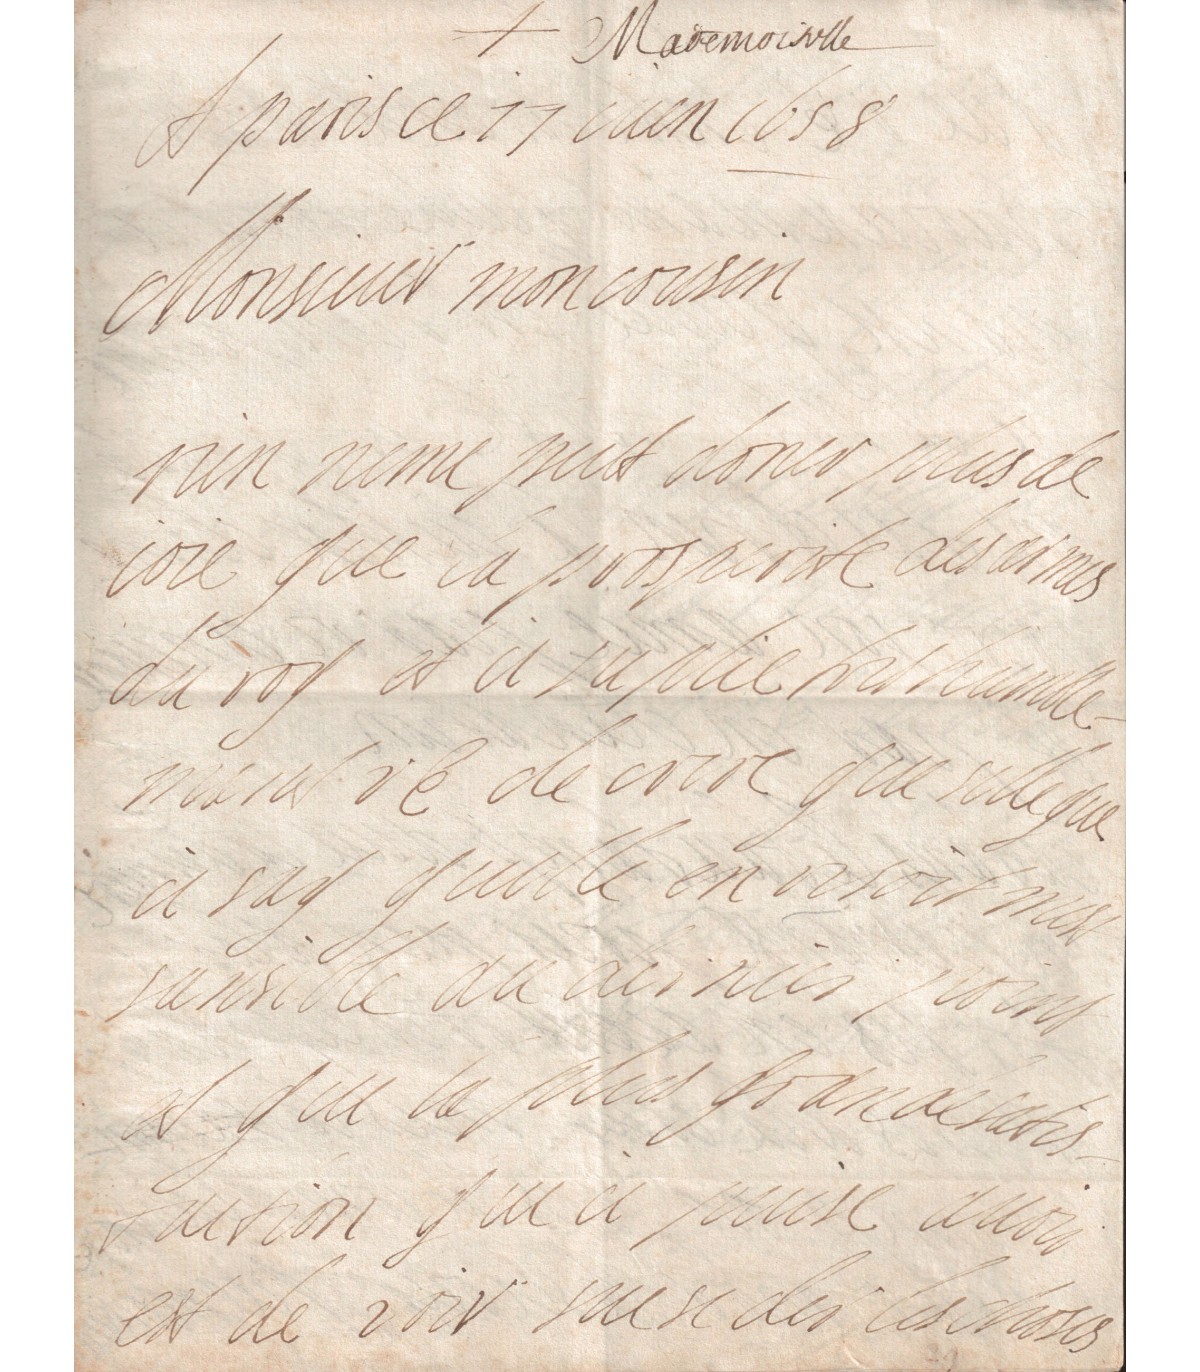 + Mademoiselle
A paris ce 17 iuien 1658
Monsieur mon cousin
rien neme peut doner plus de
ioie que la prosperite des armes
du roy et ie suplie tres humble-
ment v e de croire que selle que
ie say quelle en resoit mest
sansible au dernier point
et que la plus grande satis-
faction que ie puise auoir
est de voir suseder les choses